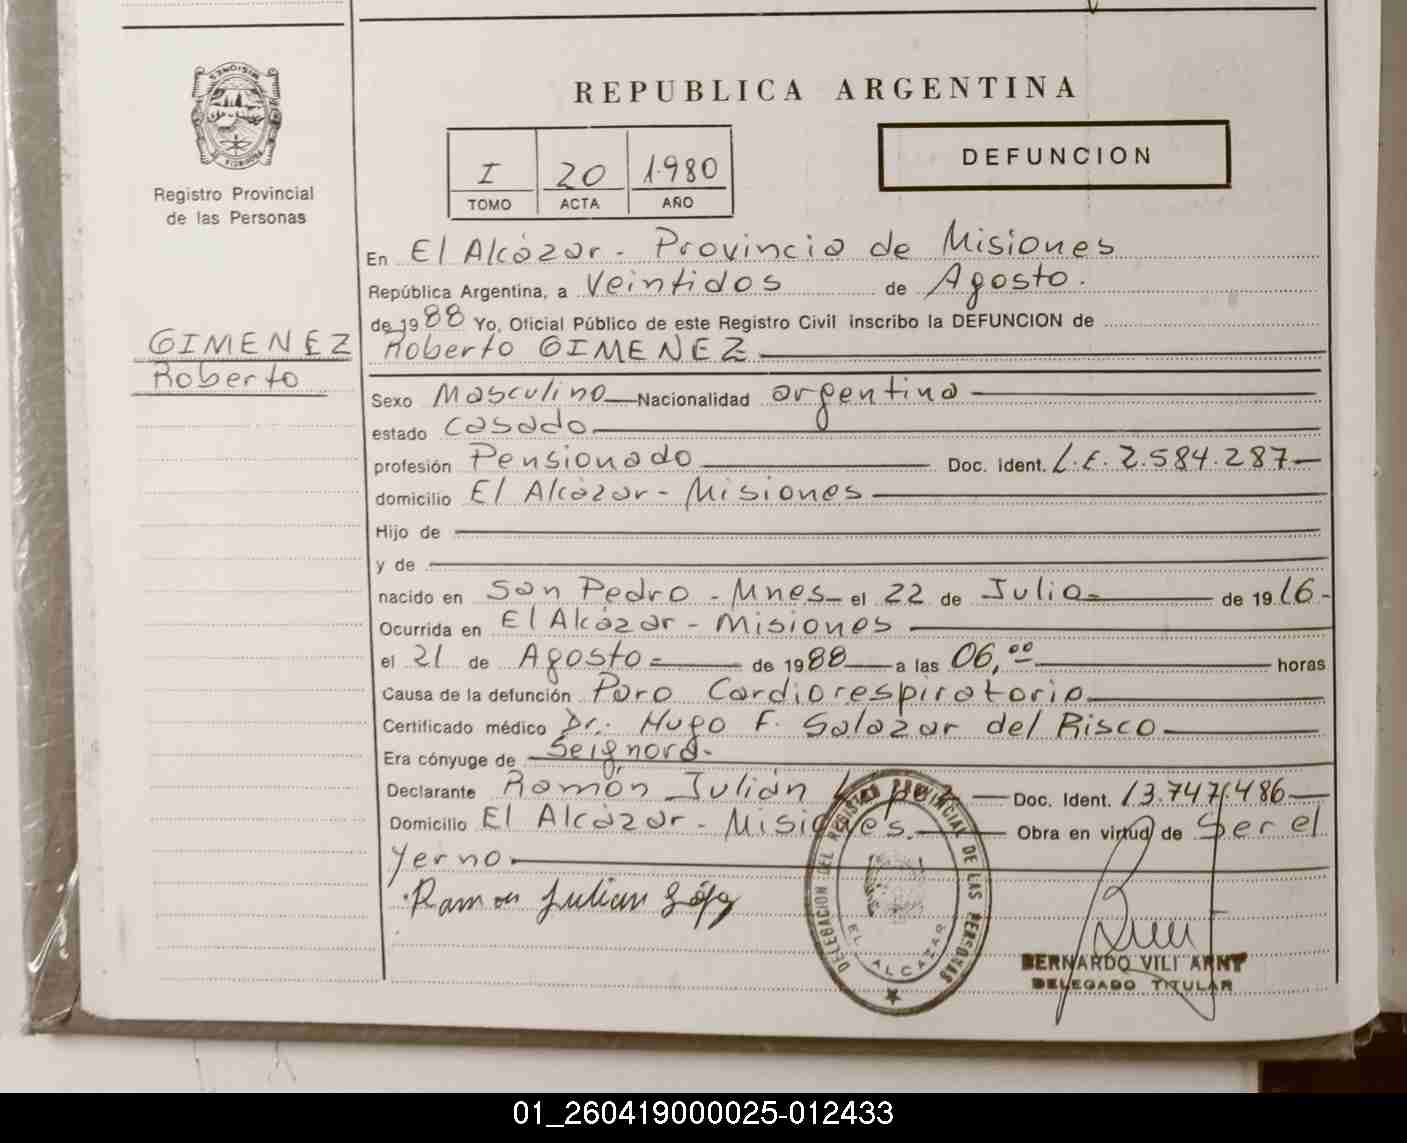 REPUBLICA ARGENTINA
MISIONES
PROVINCIA D
Registro Provincial
de las Personas
I 20 1.980
TOMO ACTA AÑO
DEFUNCION
En El Alcázar - Provincia de Misiones
República Argentina, a Veintidos de Agosto.
de 1988 Yo, Oficial Público de este Registro Civil inscribo la DEFUNCION de
GIMENEZ
Roberto
Roberto GIMENEZ
Sexo Masculino Nacionalidad argentina
estado casado
profesión Pensionado Doc. Ident. L.E. 2.584.287
domicilio El Alcázar - Misiones
Hijo de
y de
nacido en San Pedro - Mnes el 22 de Julio de 1916-
Ocurrida en El Alcázar - Misiones
el 21 de Agosto de 1988 a las 06,00 horas
Causa de la defunción Paro Cardiorespiratorio
Certificado médico Dr. Hugo F. Salazar del Risco
Era cónyuge de Seignora.
Declarante Ramón Julián López Doc. Ident. 13.747.486
Domicilio El Alcázar - Misiones. Obra en virtud de Ser el
Yerno
Ramon Julian López
DELEGACION DEL REGISTRO PROVINCIAL DE LAS PERSONAS
EL ALCAZAR
BERNARDO VILI ARNT
DELEGADO TITULAR
01_260419000025-012433